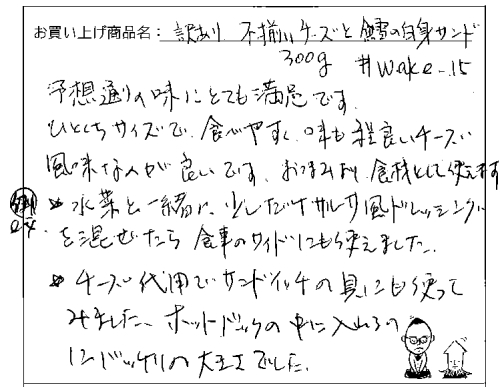 お買い上げ商品名： 訳あり 不揃い チーズと鱈の白身サンド
300g #wake-15
予想通りの味にとても満足です。
ひとくちサイズで、食べやすく、味も程良いチーズ
風味なんが良いです、おつまみより、食材として使えます
水菜と一緒に、少しだけサルサ風ドレッシング
を混ぜたら食事のサイドにも使えました。
チーズ代用でサンドイッチの具にも使って
みました、ホットドックの中に入れるの
にバッチリの大きさでした。